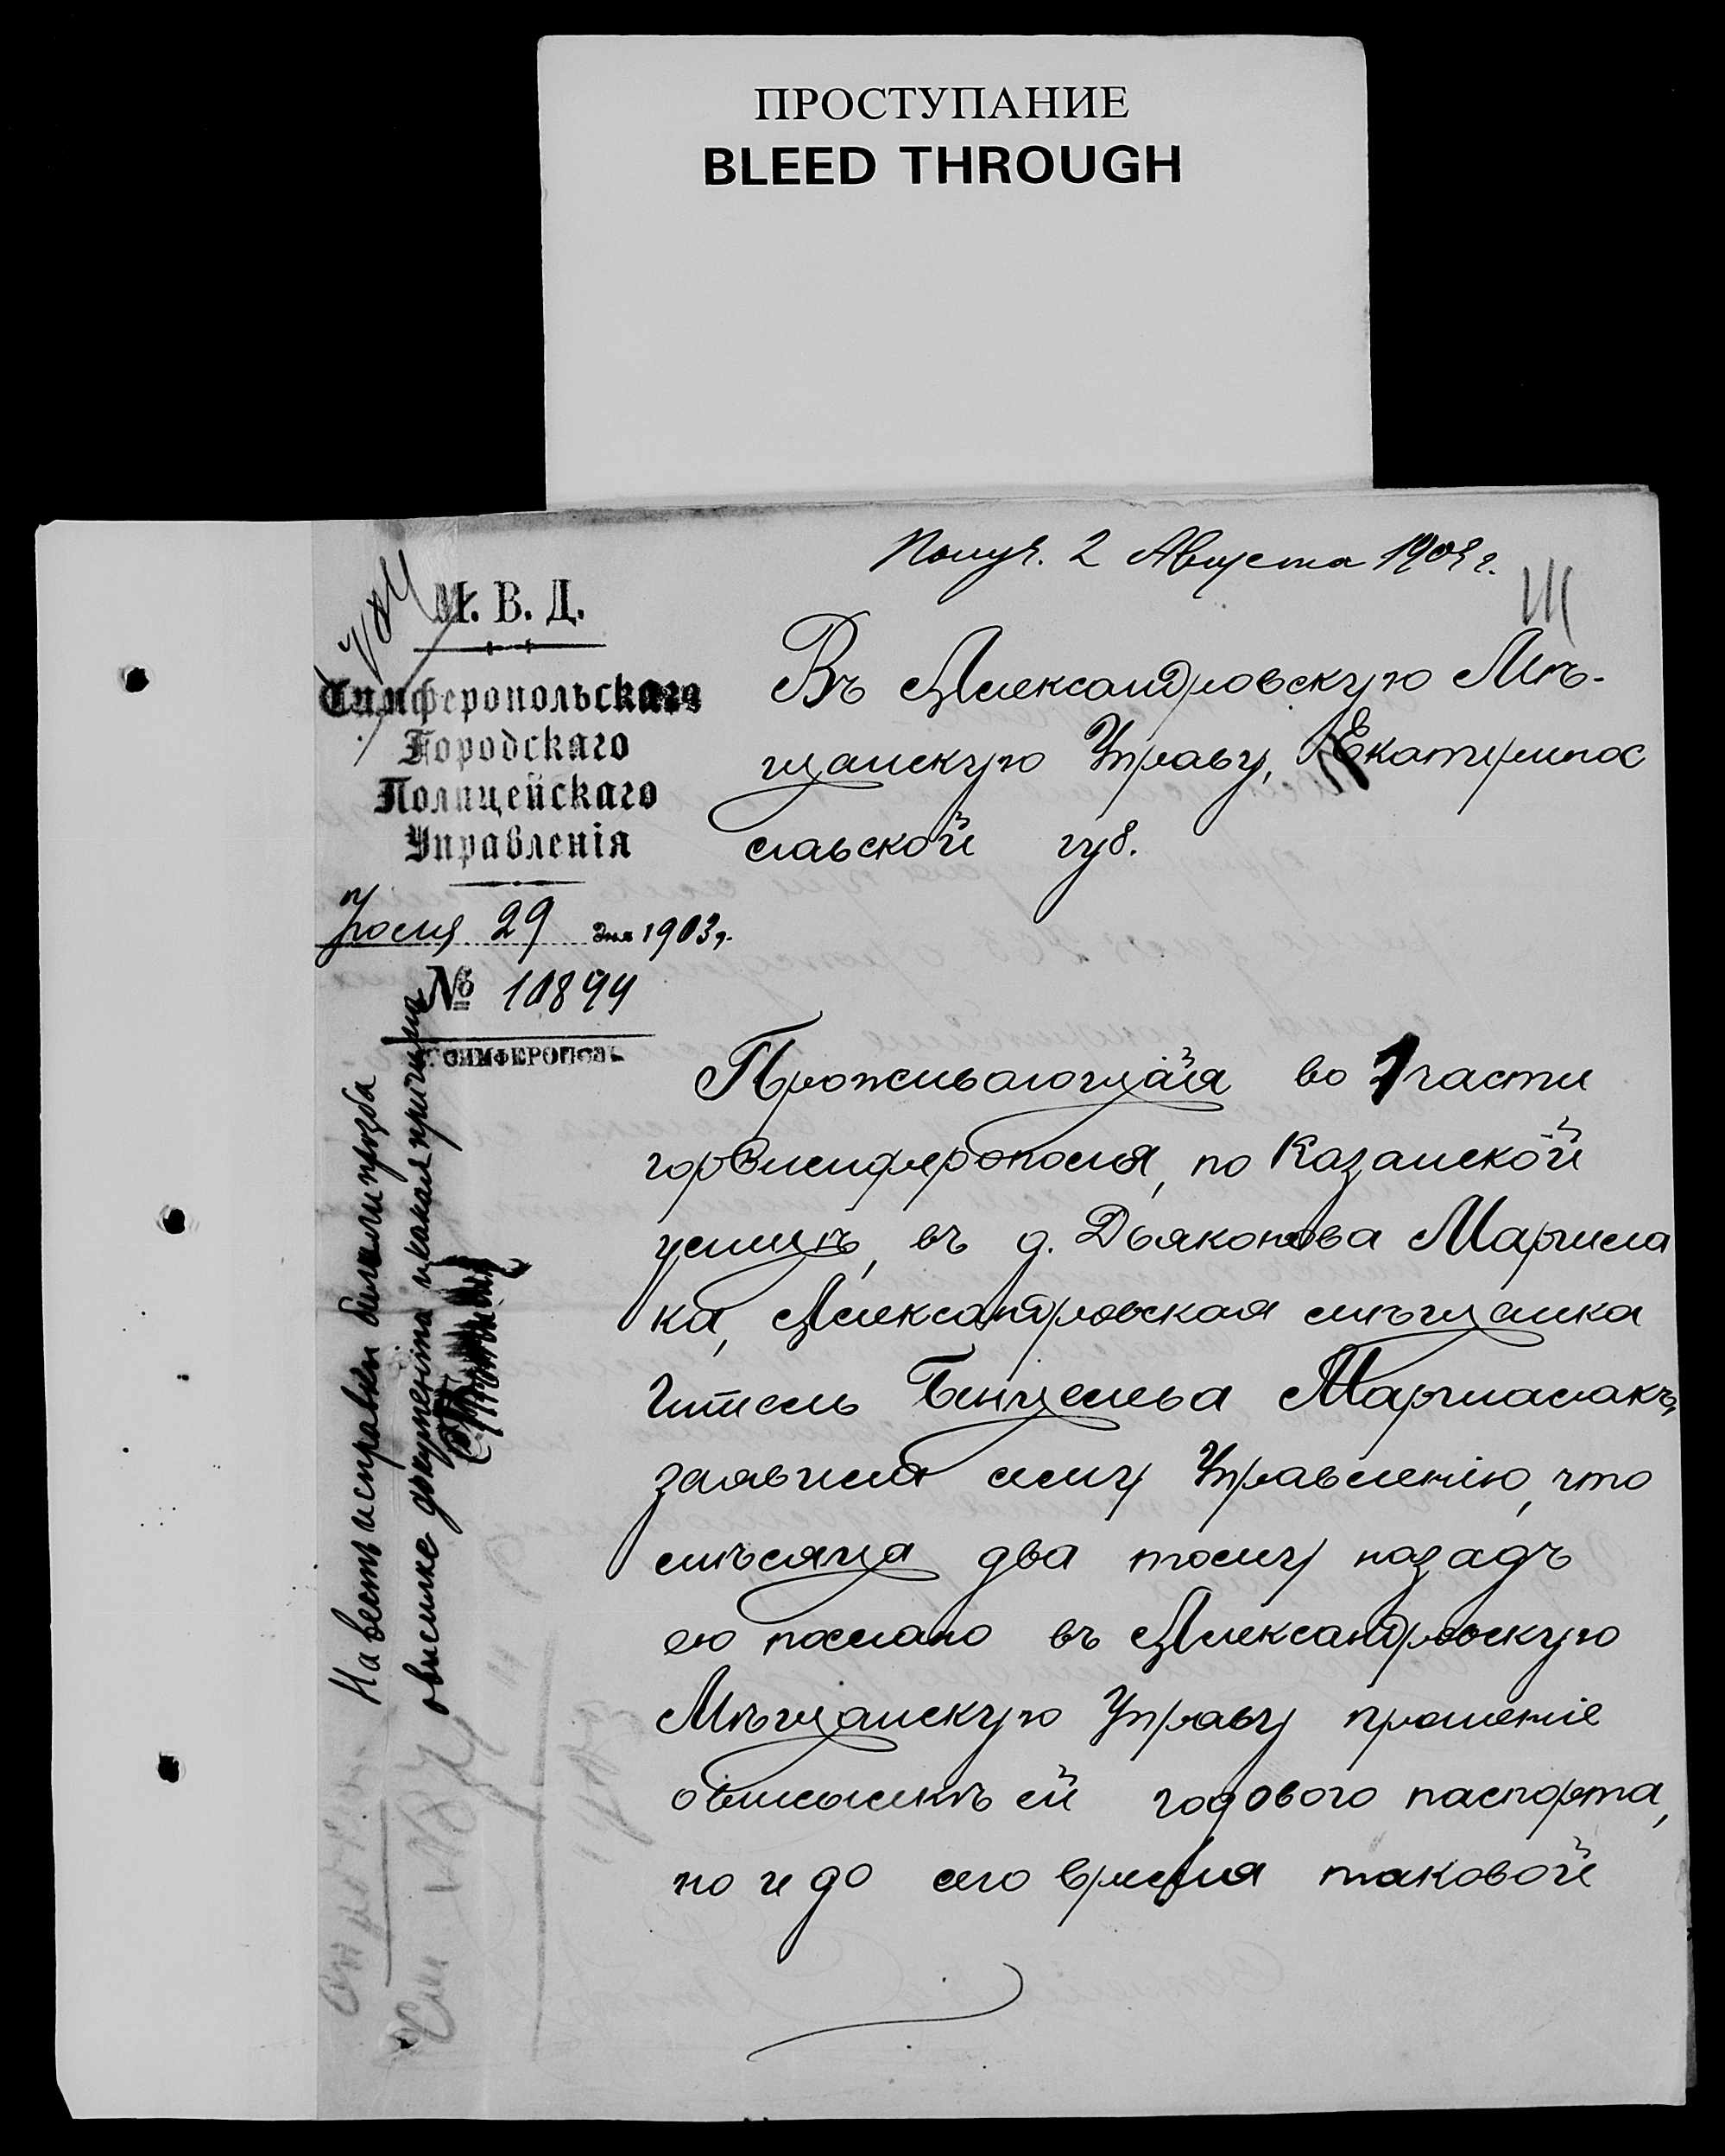 ПРОСТУПАНИЕ
BLEED THROUGH
Получ. 2 Августа 1903 г.
М. В. Д.
Симферопольскаго
Городскаго
Полицейскаго
Управленія
Іюля 29 дня 1903 г.
№ 10844
СИМФЕРОПОЛЬ
Въ Александровскую Мѣ-
щанскую Управу, Екатеринос
славской губ.
Проживающая во 1 части
гор Симферополя, по Казанской
улицѣ, въ д. Дьяконова
ка, Александровская мѣщанка
Гитель Бенцелева
заявила сему Управленію, что
мѣсяца два тому назадъ
ею послано въ Александровскую
Мѣщанскую Управу прошеніе
о высылкѣ ей годового паспорта,
но и до сего время таковой
Навесть исправки была ли прозба
овысилке документа и какая причина